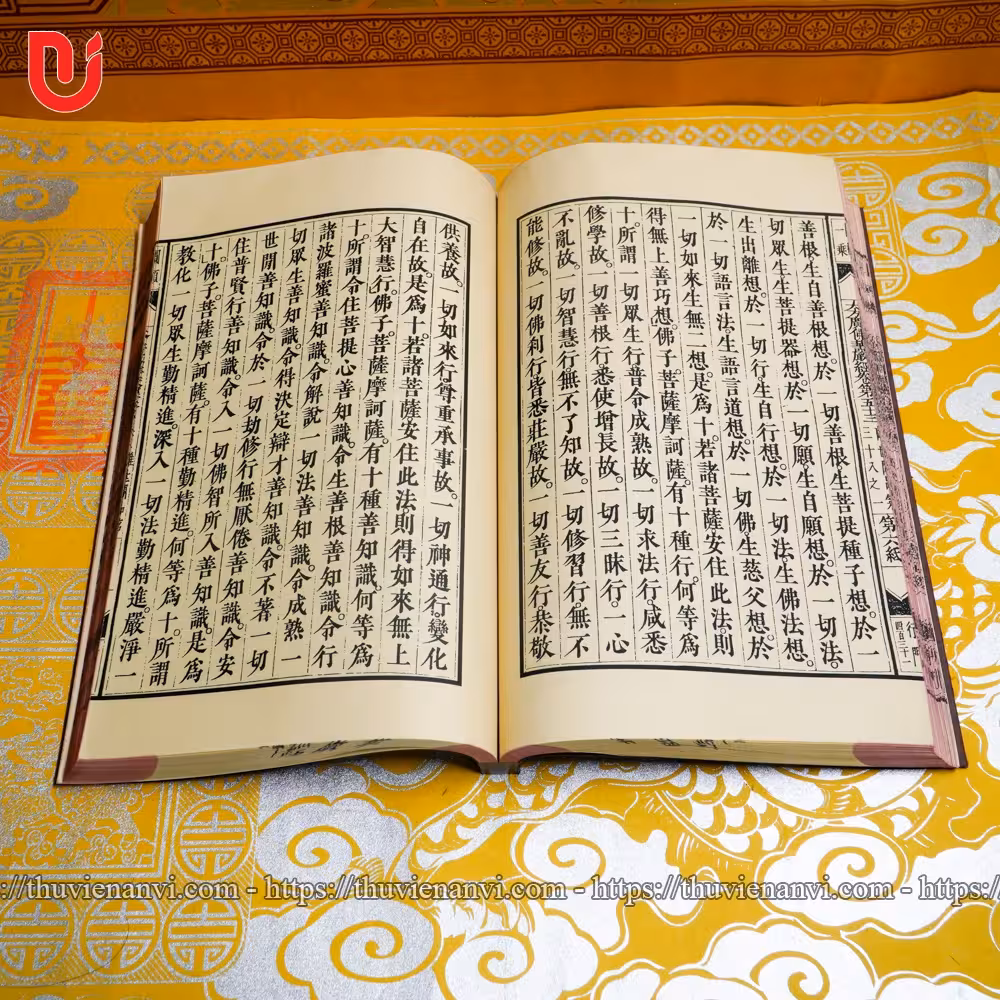 善根生自善根想。於一切善根生菩提種子想。於一
切眾生生菩提器想。於一切願生自願想。於一切法。
生出離想。於一切行生自行想。於一切法生佛法想。
於一切語言法。生語言道想。於一切佛生慈父想。於
一切如來生無二想。是為十。若諸菩薩安住此法。則
得無上善巧想。佛子。菩薩摩訶薩。有十種行。何等為
十。所謂一切眾生行普令成熟故。一切求法行。咸悉
修學故。一切善根行悉使增長故。一切三昧行。一心
不亂故。一切智慧行。無不了知故。一切修習行。無不
能修故。一切佛剎行。皆悉莊嚴故。一切善友行。恭敬
供養故。一切如來行。尊重承事故。一切神通行。變化
自在故。是為十。若諸菩薩安住此法。則得如來無上
大智慧行。佛子。菩薩摩訶薩。有十種善知識。何等為
十。所謂令住菩提心善知識。令生善根善知識。令行
諸波羅蜜善知識。令解說一切法善知識。令成熟一
切眾生善知識。令得決定辯才善知識。令不著一切
世間善知識。令於一切劫修行無厭倦善知識。令安
住普賢行善知識。令入一切佛智所入善知識。是為
十。佛子。菩薩摩訶薩。有十種勤精進。何等為十。所謂
教化一切眾生勤精進。深入一切法勤精進。嚴淨一
://thuvienanvi.com - https://thuvienanvi.com - https://thuvienanvi.com - https://thuvienanvi.com - http